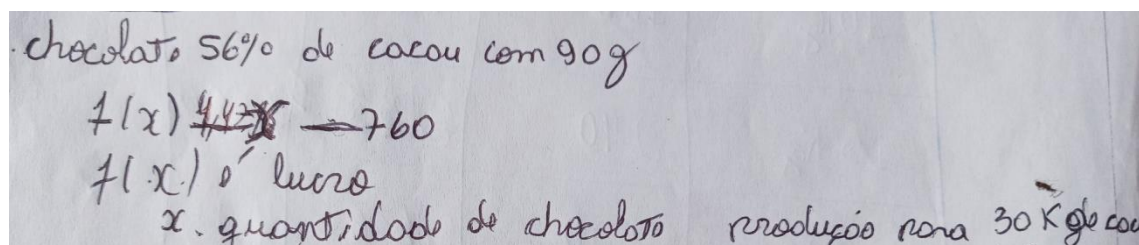 . chocolato 56% de cacau com 90g
f(x) — 760
f(x) é lucro
x. quantidade de chocolato produção para 30 Kg de cac